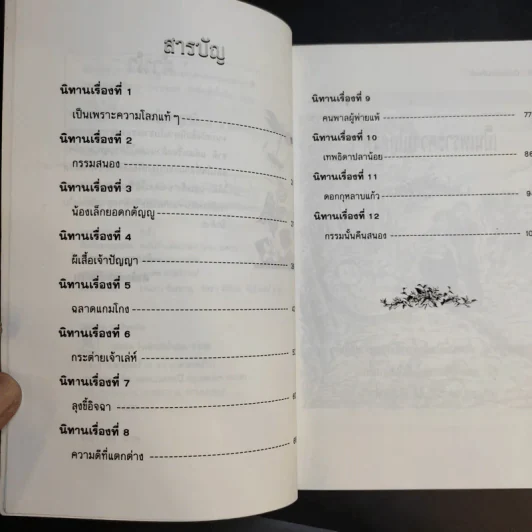 สารบัญ
นิทานเรื่องที่ 1
เป็นเพราะความโลภแท้ ๆ
นิทานเรื่องที่ 2
กรรมสนอง
นิทานเรื่องที่ 3
น้องเล็กยอดกตัญญู
นิทานเรื่องที่ 4
ผีเสื้อเจ้าปัญญา
นิทานเรื่องที่ 5
ฉลาดแกมโกง
นิทานเรื่องที่ 6
กระต่ายเจ้าเล่ห์
นิทานเรื่องที่ 7
ลุงขี้อิจฉา
นิทานเรื่องที่ 8
ความดีที่แตกต่าง
นิทานเรื่องที่ 9
คนพาลผู้พ่ายแพ้ 77
นิทานเรื่องที่ 10
เทพธิดาปลาน้อย
นิทานเรื่องที่ 11
ดอกกุหลาบแก้ว
นิทานเรื่องที่ 12
กรรมนั้นคืนสนอง